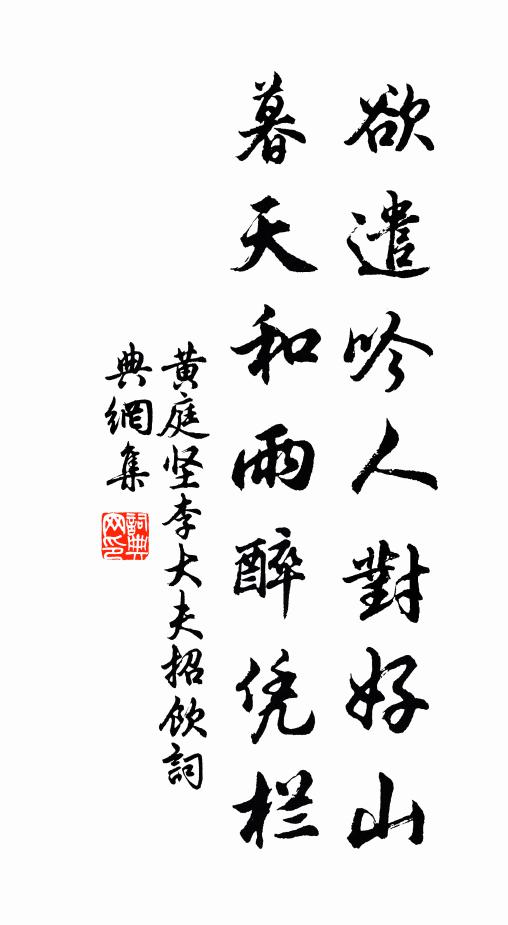 欲遣吟人對好山
暮天和雨醉凭栏
黄庭坚李大夫招飲詞
典網集
詞典網印